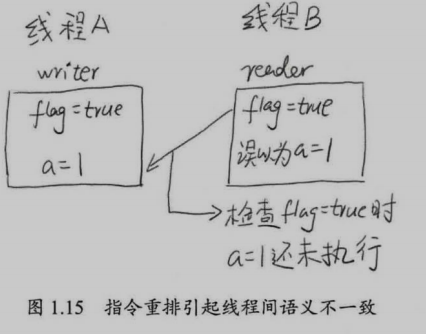 线程A
writer
flag=true
a=1
线程B
reader
flag=true
误以为a=1
检查flag=true时
a=1还未执行
图 1.15 指令重排引起线程间语义不一致